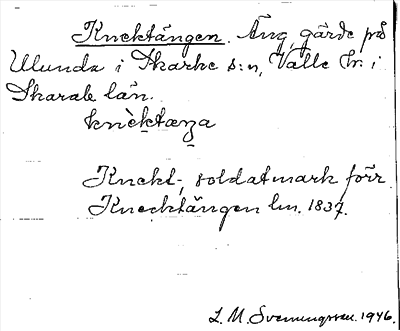 Knektängen. Äng, gärde på
Ulunda i Skarke s:n, Valle hr. i
Skarab. län.
knèktæŋa
Knekt-, soldatmark förr.
Knecktängen lm. 1837.
L. M. Svenungsson. 1946.